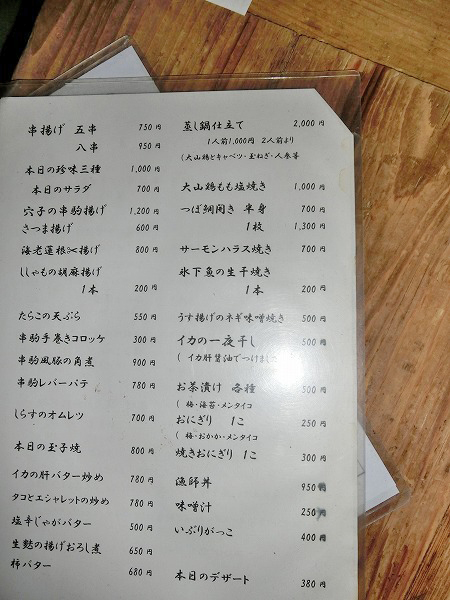 串揚げ 五串 750円
八串 950円
本日の珍味三種 1,000円
本日のサラダ 700円
穴子の串駒揚げ 1,200円
さつま揚げ 600円
海老蓮根揚げ 800円
ししゃもの胡麻揚げ
1本 200円
たらこの天ぷら 550円
串駒手巻きコロッケ 300円
串駒風豚の角煮 900円
串駒レバーパテ 780円
しらすのオムレツ 700円
本日の玉子焼 800円
イカの肝バター炒め 780円
タコとエシャレットの炒め 780円
塩辛じゃがバター 500円
生麩の揚げおろし煮 650円
柿バター 680円
蒸し鍋仕立て 2,000円
1人前1,000円 2人前より
(大山鶏とキャベツ・玉ねぎ・人参等
大山鶏もも塩焼き 1,000円
つぼ鯛開き 半身 700円
1枚 1,300円
サーモンハラス焼き 700円
氷下魚の生干焼き
1本 200円
うす揚げのネギ味噌焼き 500円
イカの一夜干し 500円
(イカ肝醤油でつけました
お茶漬け 各種 500円
(梅・海苔・メンタイコ
おにぎり 1こ 250円
(梅・おかか・メンタイコ
焼きおにぎり 1こ 300円
漁師丼 950円
味噌汁 250円
いぶりがっこ 400円
本日のデザート 380円